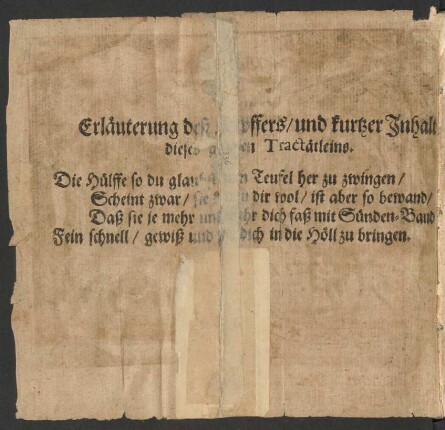 Erläuterung deß Kupffers/und kurtzer Inhalt
dieses gantzen Tractätleins.
Die Hülffe so du glaubst vom Teufel her zu zwingen/
Scheint zwar/ sie dir wol/ ist aber so bewand/
Daß sie je mehr und mehr dich faß mit Sünden-Band
Fein schnell/ gewiß und dich in die Höll zu bringen.